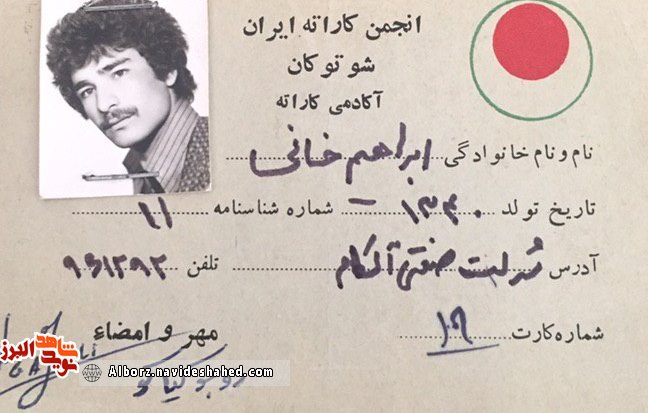 انجمن کاراته ایران
شوتوکان
آکادمی کاراته
نام و نام خانوادگی ابراهیم خانی
تاریخ تولد ۱۳۴۰ شماره شناسنامه ۱۱
آدرس شرکت صنعتی تلفن ۹۶۱۲۹۲
شماره کارت ۱۹ مهر و امضاء
شاهد
نوید
البرز
Alborz.navideshahed.com